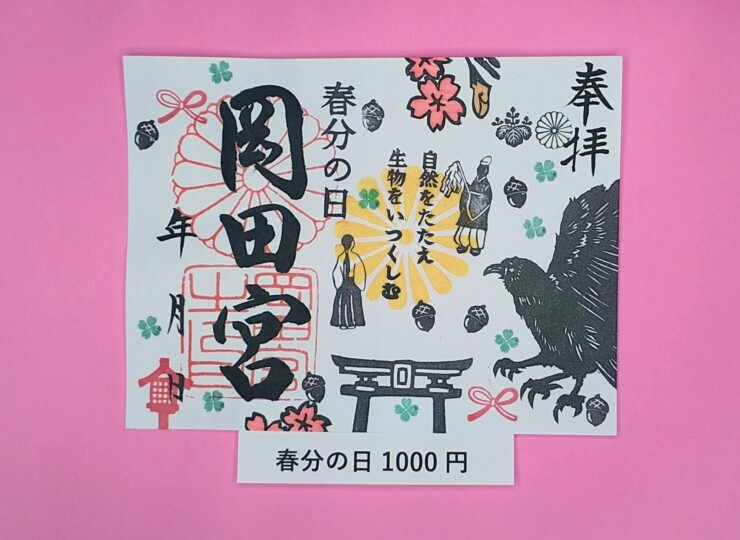 奉拝
自然をたたえ
生物をいつくしむ
春分の日
岡田宮
年月日
春分の日 1000 円